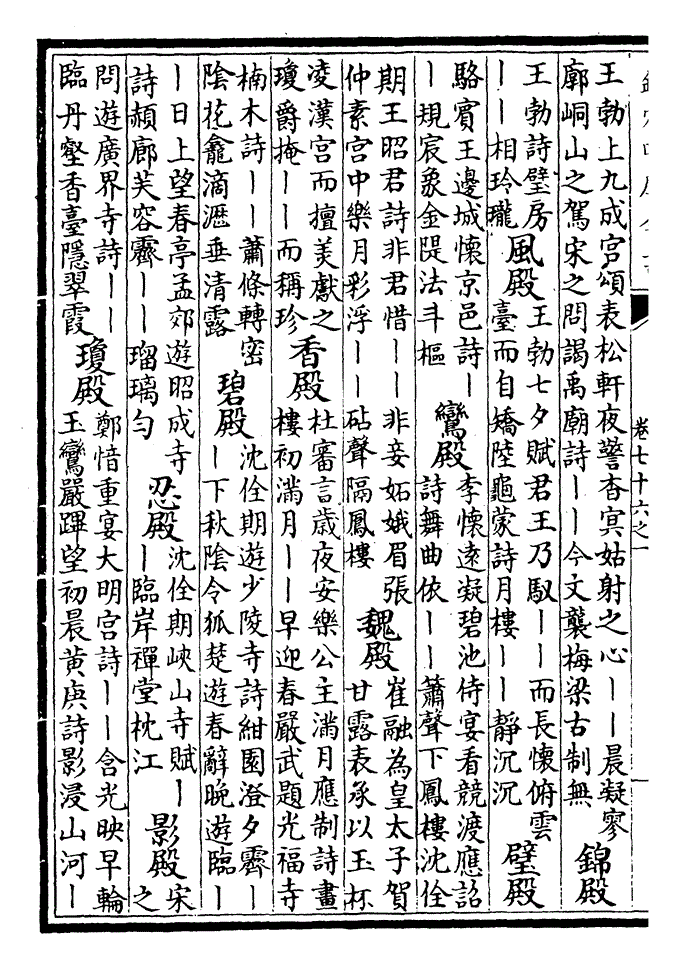 卷七十六之一
王勃上九成宮頌表松軒夜警杳冥姑射之心丨丨晨凝寥
廓峒山之駕宋之問謁禹廟詩丨丨今文襲梅梁古制無
錦殿
王勃詩璧房
丨丨相玲瓏
風殿
王勃七夕賦君王乃馭丨丨而長懷俯雲
臺而自矯陸龜蒙詩月樓丨丨靜沉沉
璧殿
駱賓王邊城懷京邑詩丨
丨規宸象金隄法斗樞
鸞殿
李懷遠凝碧池侍宴看競渡應詔
詩舞曲依丨丨簫聲下鳳樓沈佺
期王昭君詩非君惜丨丨非妾妬娥眉張
仲素宮中樂月彩浮丨丨砧聲隔鳳樓
魏殿
崔融為皇太子賀
甘露表承以玉杯
凌漢宮而擅美獻之
瓊爵掩丨丨而稱珍
香殿
杜審言歲夜安樂公主滿月應制詩畫
樓初滿月丨丨早迎春嚴武題光福寺
楠木詩丨丨蕭條轉密
陰花龕滴瀝垂清露
碧殿
沈佺期遊少陵寺詩紺園澄夕霽丨
丨下秋陰令狐楚遊春辭晚遊臨丨
丨日上望春亭孟郊遊昭成寺
詩頳廊芙容霽丨丨瑠璃勻
忍殿
沈佺期峽山寺賦丨
丨臨岸禪堂枕江
影殿
宋
之
問遊廣界寺詩丨丨
臨丹壑香臺隱翠霞
瓊殿
鄭愔重宴大明宮詩丨丨含光映早輪
玉鸞嚴蹕望初晨黃庾詩影浸山河丨